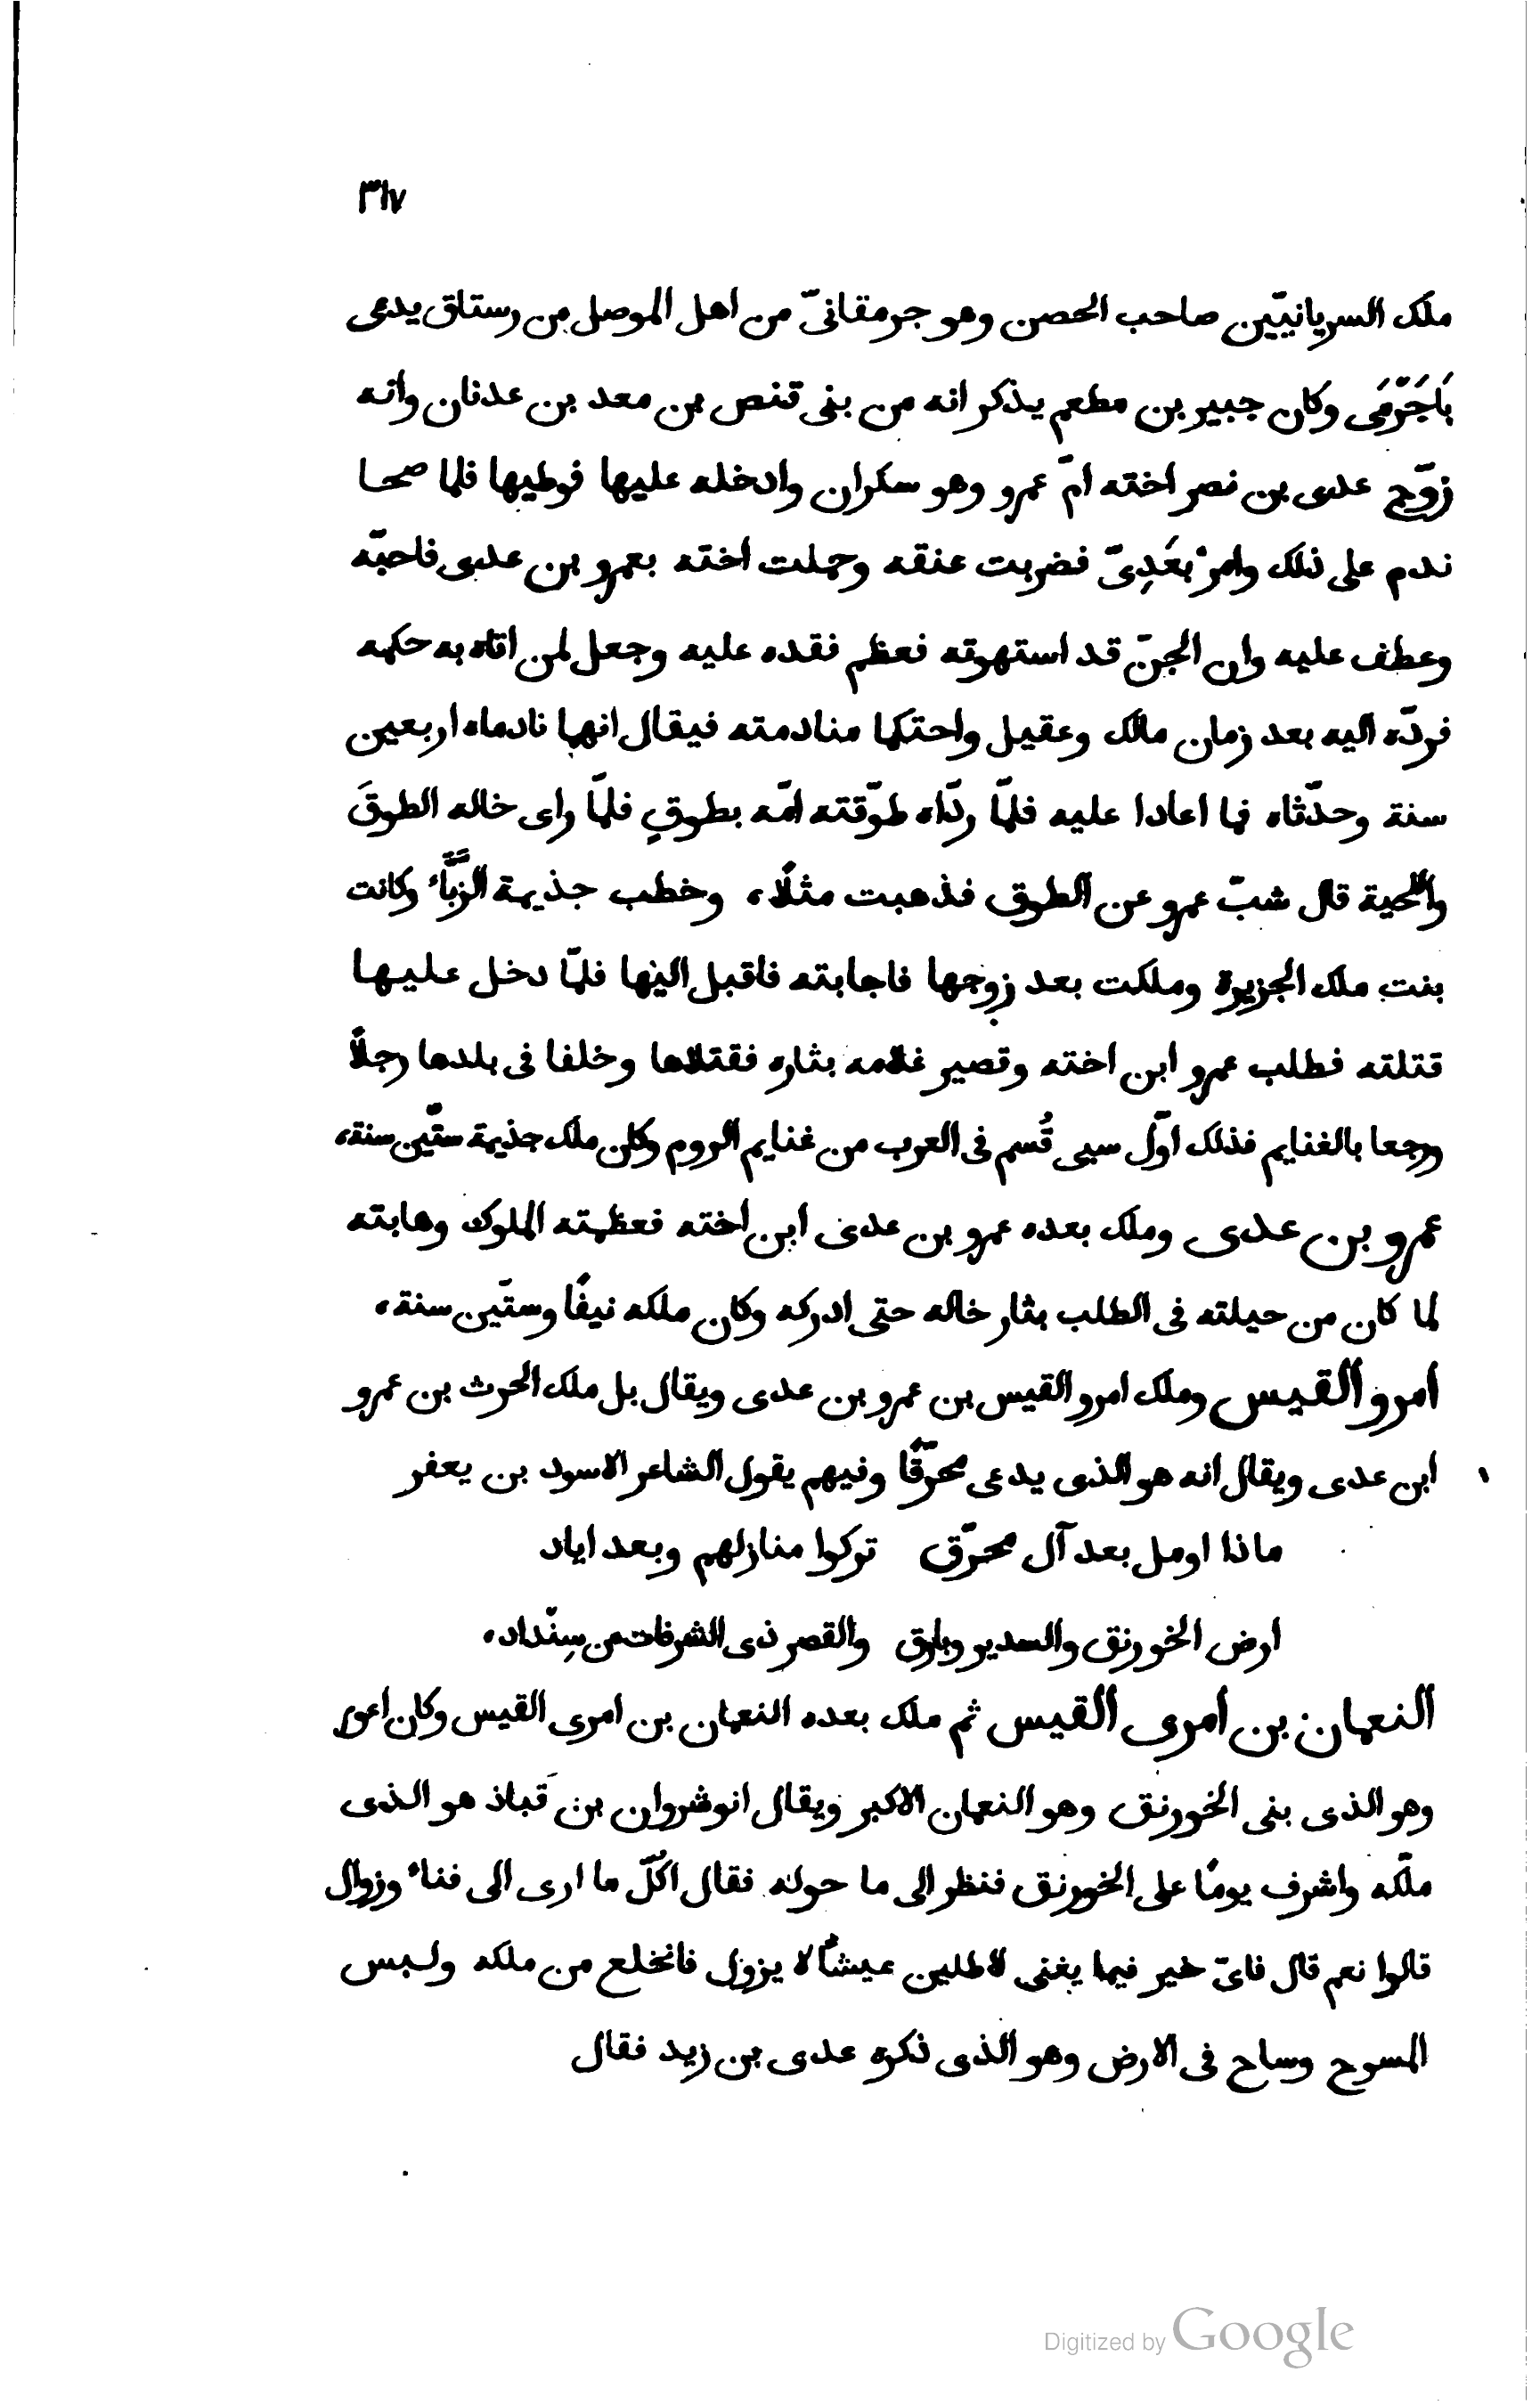 ٣١٧
ملك السريانيّين صاحب الحصن وهو جرمقانىّ من اهل الموصل من رستاق يدعى
بَاجَرْمَى وكان جبير بن مطعم يذكر انه من بنى قنص بن معد بن عدنان وانه
زوّج عدى بن نصر اخته امّ عمرو وهو سكران وادخله عليها فوطيها فلما صحا
ندم على ذلك وامر بعَدِىّ فضربت عنقه وحملت اخته بعمرو بن عدى فاحبّه
وعطف عليه وان الجنّ قد استهوته فعظم فقده عليه وجعل لمن اتاه به حكمه
فردّه اليه بعد زمان مالك وعقيل واحتكما منادمته فيقال انهما نادماه اربعين
سنة وحدّثاه فما اعادا عليه فلمّا ردّاه طوّقته امّه بطوقٍ فلمّا راى خاله الطوقَ
واللحية قال شبّ عمرو عن الطوق فذهبت مثلًا، وخطب جذيمة الزبَّاء وكانت
بنت ملك الجزيرة وملكت بعد زوجها فاجابته فاقبل اليها فلمّا دخل عليها
قتلته فطلب عمرو ابن اخته وقصير غلامه بثاره فقتلاها وخلفا فى بلدها رجلًا
ورجعا بالغنايم فذلك اوّل سبى قُسم فى العرب من غنايم الروم وكان ملك جذيمة ستّين سنة،
عمرو بن عدى وملك بعده عمرو بن عدى ابن اخته فعظمته الملوك وهابته
لما كان من حيلته فى الطلب بثار خاله حتى ادركه وكان ملكه نيفًا وستّين سنة،
امرو القيس وملك امرو القيس بن عمرو بن عدى ويقال بل ملك الحرث بن عمرو
ابن عدى ويقال انه هو الذى يدعى محرّقًا وفيهم يقول الشاعر الاسود بن يعفر
ماذا اومل بعد آل محرّق تركوا منازلهم وبعد اياد
ارض الخورنق والسدير وبارق والقصر ذى الشرفات من سِنْداد،
النعمان بن امرى القيس ثم ملك بعده النعمان بن امرى القيس وكان اعور
وهو الذى بنى الخورنق وهو النعمان الاكبر ويقال انوشروان بن قباذ هو الذى
ملّكه واشرف يومًا على الخورنق فنظر الى ما حوله فقال اكُلّ ما ارى الى فناء وزوال
قالوا نعم قال فاىّ خير فيما يفنى لاطلبن عيشًا لا يزول فانخلع من ملكه ولبس
المسوح وساح فى الارض وهو الذى ذكره عدى بن زيد فقال
Digitized by Google